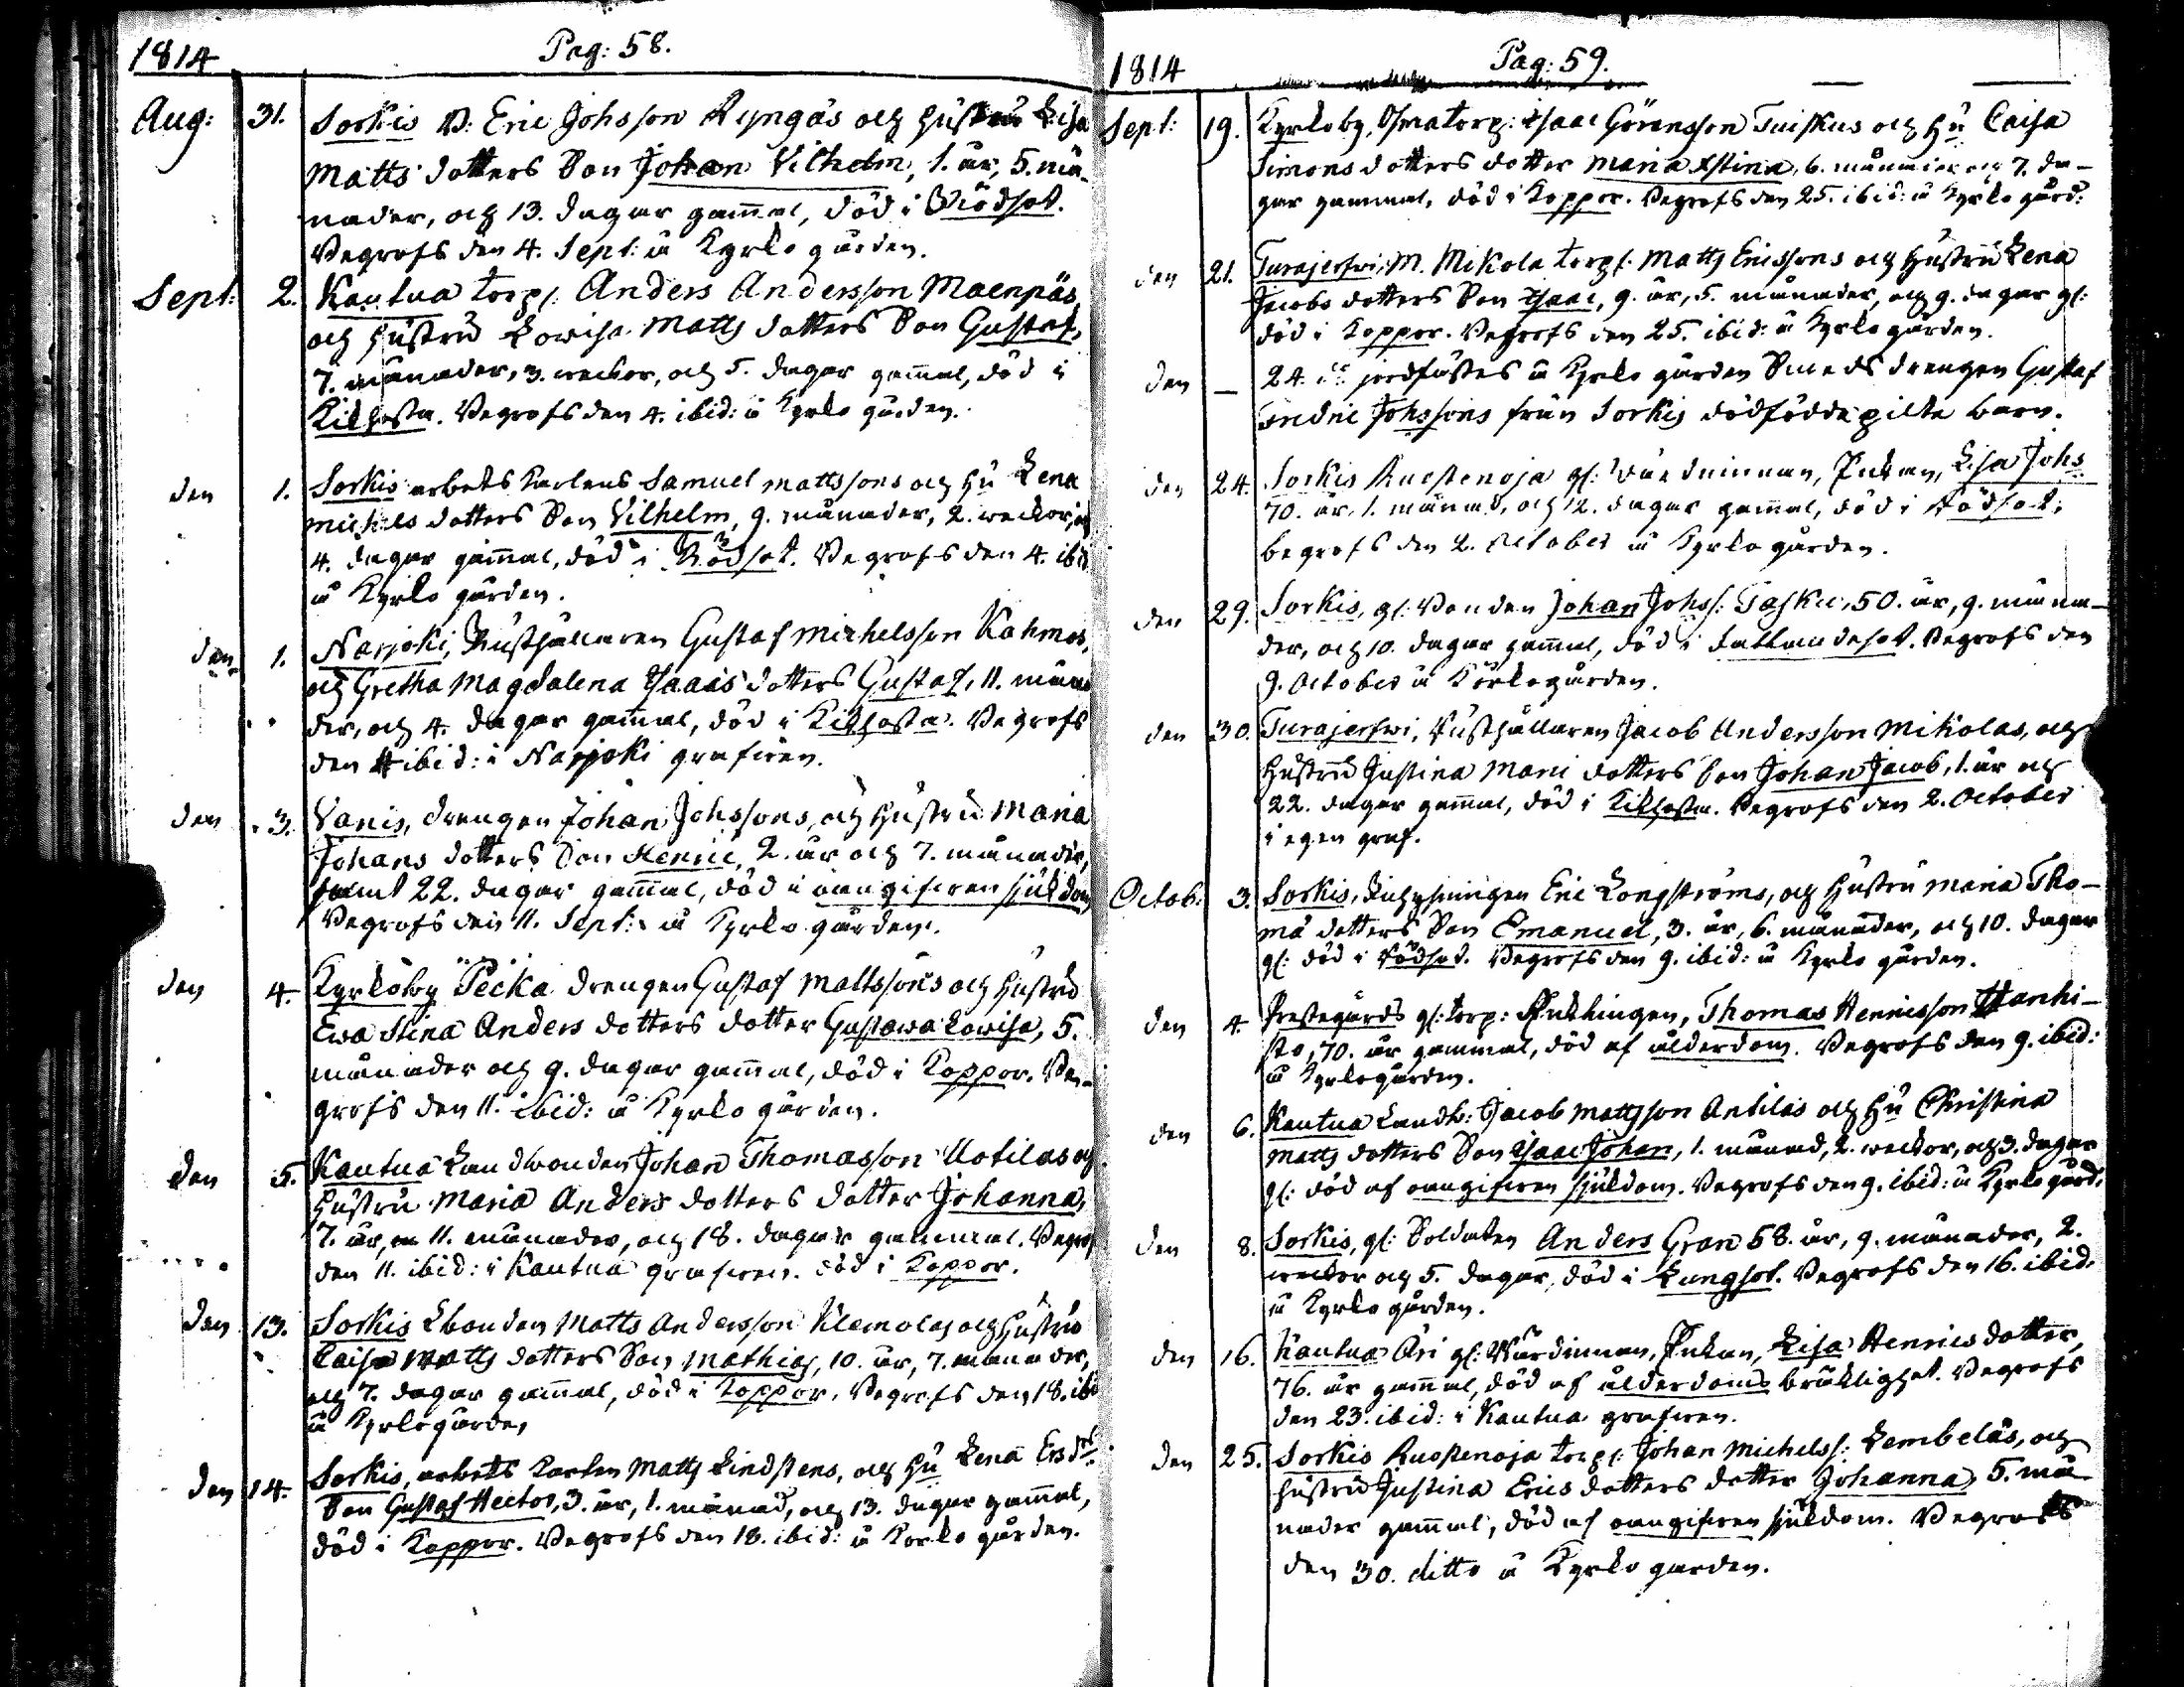 1814 Pag: 58.
Aug: 31. Sorkis B: Eric Johsson Ryngäs och hustru Lisa
Matts dotters Son Johan Vilhelm, 1. år, 5. må-
nader, och 13. dagar gammal, död i Rödsot.
Begrofs den 4. Sept: å Kyrko gården.
Sept: 2. Kautua torp: Anders Andersson Maenpäs,
och hustru Lowisa Matts dotters Son Gustaf,
7. månader, 3. weckor, och 5. dagar gammal, död i
Kikhosta. Begrofs den 4. ibid: å Kyrko gården.
den 1. Sorkis arbets Karlens Samuel Mattssons och Hu Lena
Michels dotters Son Vilhelm, 9. månader, 2. weckor, och
4. dagar gammal, död i Rödsot. Begrofs den 4. ibid
å Kyrko gården.
den 1. Narjoki, Rusthållaren Gustaf Michelsson Kahmas,
och Gretha Magdalena Isaacs dotters Gustaf, 11. måna
der, och 4. dagar gammal, död i Kikhosta. Begrofs
den 4 ibid: i Narjoki grafwen.
den 3. Vanis, drengen Johan Johssons, och Hustru Maria
Johans dotters Son Henric, 2. år och 7. månader,
samt 22. dagar gammal, död i oangifwen sjukdom
Begrofs den 11. Sept: å Kyrko gården.
den 4. Kyrkoby Pecka drengen Gustaf Mattssons och Hustru
Ewa Stina Anders dotters dotter Gustawa Lowisa, 5.
månader och 9. dagar gammal, död i Koppor. Be-
grofs den 11. ibid: å Kyrko gården.
den 5. Kautua Landbonden Johan Thomasson Uotilas och
Hustru Maria Anders dotters dotter Johanna,
7. år, 11. månader, och 18. dagar gammal. Begrof
den 11. ibid: i Kautua grafwen. död i Koppor.
den 13. Sorkis Lbonden Matts Andersson Klemolas och Hustru
Caisa Matts dotters Son Mathias, 10. år, 7. månader,
och 7. dagar gammal, död i Koppor. Begrofs den 18. ibi
å Kyrkogården
den 14. Sorkis, arbets Karlen Matts Lindstens, och Hu Lena Ersdr:
Son Gustaf Hector, 3. år, 1. månad, och 13. dagar gammal,
död i Koppor. Begrofs den 18. ibid: å Korko gården.
1814 Pag: 59.
Sept: 19. Kyrkoby, torp: Isaac Göransson Tuiskus och Hu Caisa
Simons dotters dotter Maria Xstina, 6. månader och 7. da-
gar gammal, död i Koppor. Begrofs den 25. ibid: å Kyrko gård:
den 21. Turajerfwi, M. Mikola torp: Matts Ericssons och Hustru Lena
Jacobs dotters Son Isaac, 9. år, 5. månader, och 9. dagar gl:
död i Koppor. Begrofs den 25. ibid: å Kyrko gården.
den — 24. de jordfästes å Kyrko gården Smeds drengen Gustaf
Fredric Johssons från Sorkis dödfödda pilte barn.
den 24. Sorkis Ruostenoja gl: Wärdinnan, Enkan, Lisa Johs
70. år, 1. månad, och 12. dagar gammal, död i Rödsot;
begrofs den 2. October å Kyrko gården.
den 29. Sorkis, gl: Bonden Johan Johss: Tasku, 50. år, 9. måna-
der, och 10. dagar gammal, död i fallandesot. Begrofs den
9. October å Körkogården.
den 30. Turajerfwi, Rusthållaren Jacob Andersson Mikolas, och
Hustru Justina Marci dotters Son Johan Jacob, 1. år och
22. dagar gammal, död i Kikhosta. Begrofs den 2. October
i egen graf.
Octob: 3. Sorkis, Inhysingen Eric Longströms, och Hustru Maria Tho-
mæ dotters Son Emanuel, 3. år, 6. månader, och 10. dagar
gl: död i Rödsot. Begrofs den 9. ibid: å Kyrko gården.
den 4. Prestegårds gl: torp: Enklingen, Thomas Henricsson Hanhi-
sto, 70. år gammal, död af ålderdom. Begrofs den 9. ibid:
å Kyrkogården.
den 6. Kautua Landb: Jacob Mattsson Antilas och Hu Christina
Matts dotters Son Isaac Johan, 1. månad, 2. weckor, och 3. dagar
gl: död af oangifwen sjukdom. Begrofs den 9. ibid: å Kyrko gård.
den 8. Sorkis, gl: Soldaten Anders Gran 58. år, 9. månader, 2.
weckor och 5. dagar, död i Lungsot. Begrofs den 16. ibid.
å Kyrko gården.
den 16. Kautua Äri gl: Wärdinnan, Enkan, Lisa Henrics dotter,
76. år gammal, död af ålderdoms bräklighet. Begrofs
den 23. ibid: i Kautua grafwen.
den 25. Sorkis Ruostenoja torp: Johan Michelss: Lembeläs, och
Hustru Justina Erics dotters dotter Johanna, 5. må-
nader gammal, död af oangifwen sjukdom. Begrofs
den 30. ditto å Kyrko gården.